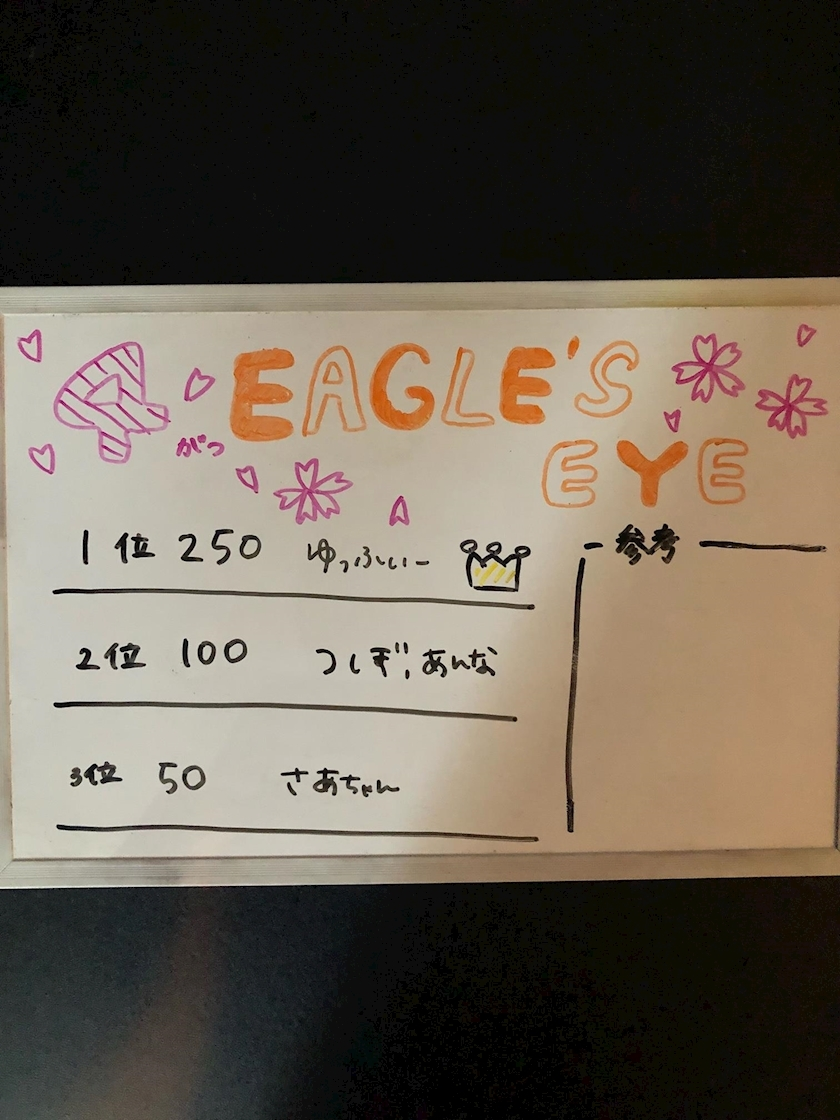 4がつ EAGLE'S
EYE
1位 250 ゆっふぃー
2位 100 つしぎ,あんな
3位 50 さあちゃん
参考